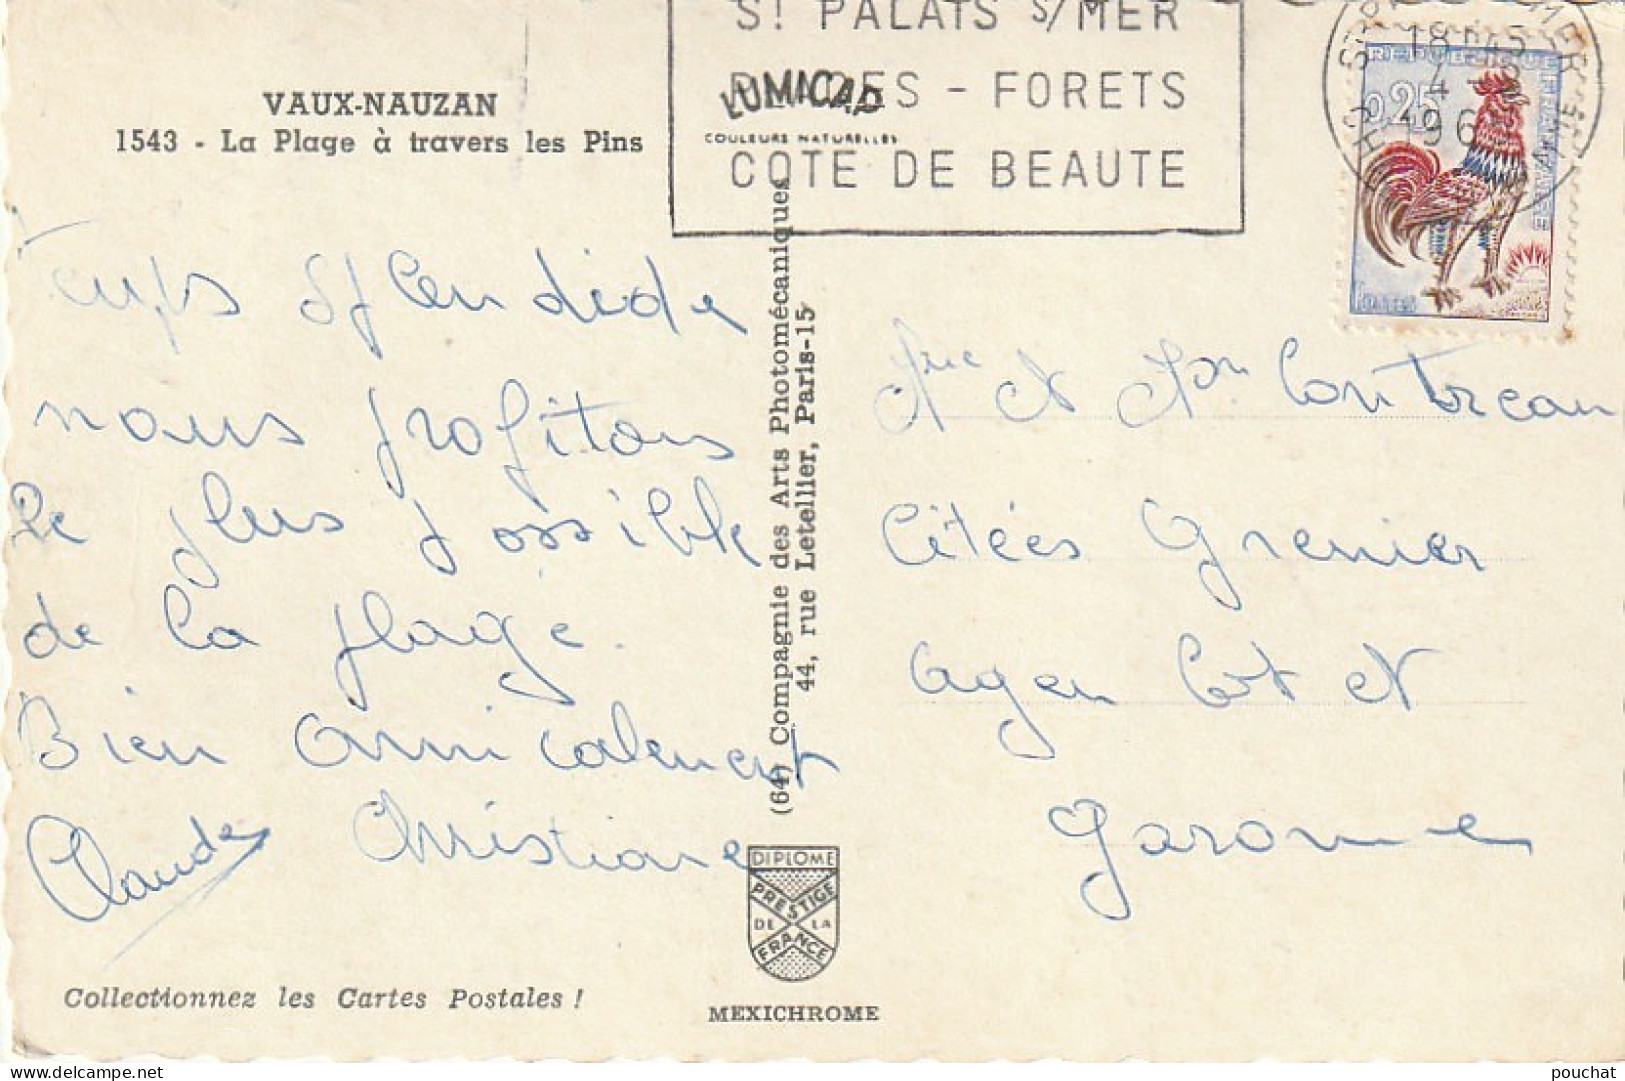 St PALAIS s/MER
PLAGES - FORETS
COTE DE BEAUTE
LUMICAP
COULEURS NATURELLES
VAUX-NAUZAN
1543 - La Plage à travers les Pins
18 H 45
REPUBLIQUE FRANÇAISE
0,25
POSTES
Temps splendide
nous profitons
le plus possible
de la plage.
Bien amicalement
Claude Christiane
(64) Compagnie des Arts Photomécaniques
44, rue Letellier, Paris-15
Mme et Mr Contreau
Citées Grenier
Agen Lot et
Garonne
DIPLOME
PRESTIGE
DE LA
FRANCE
MEXICHROME
Collectionnez les Cartes Postales !
pouchat